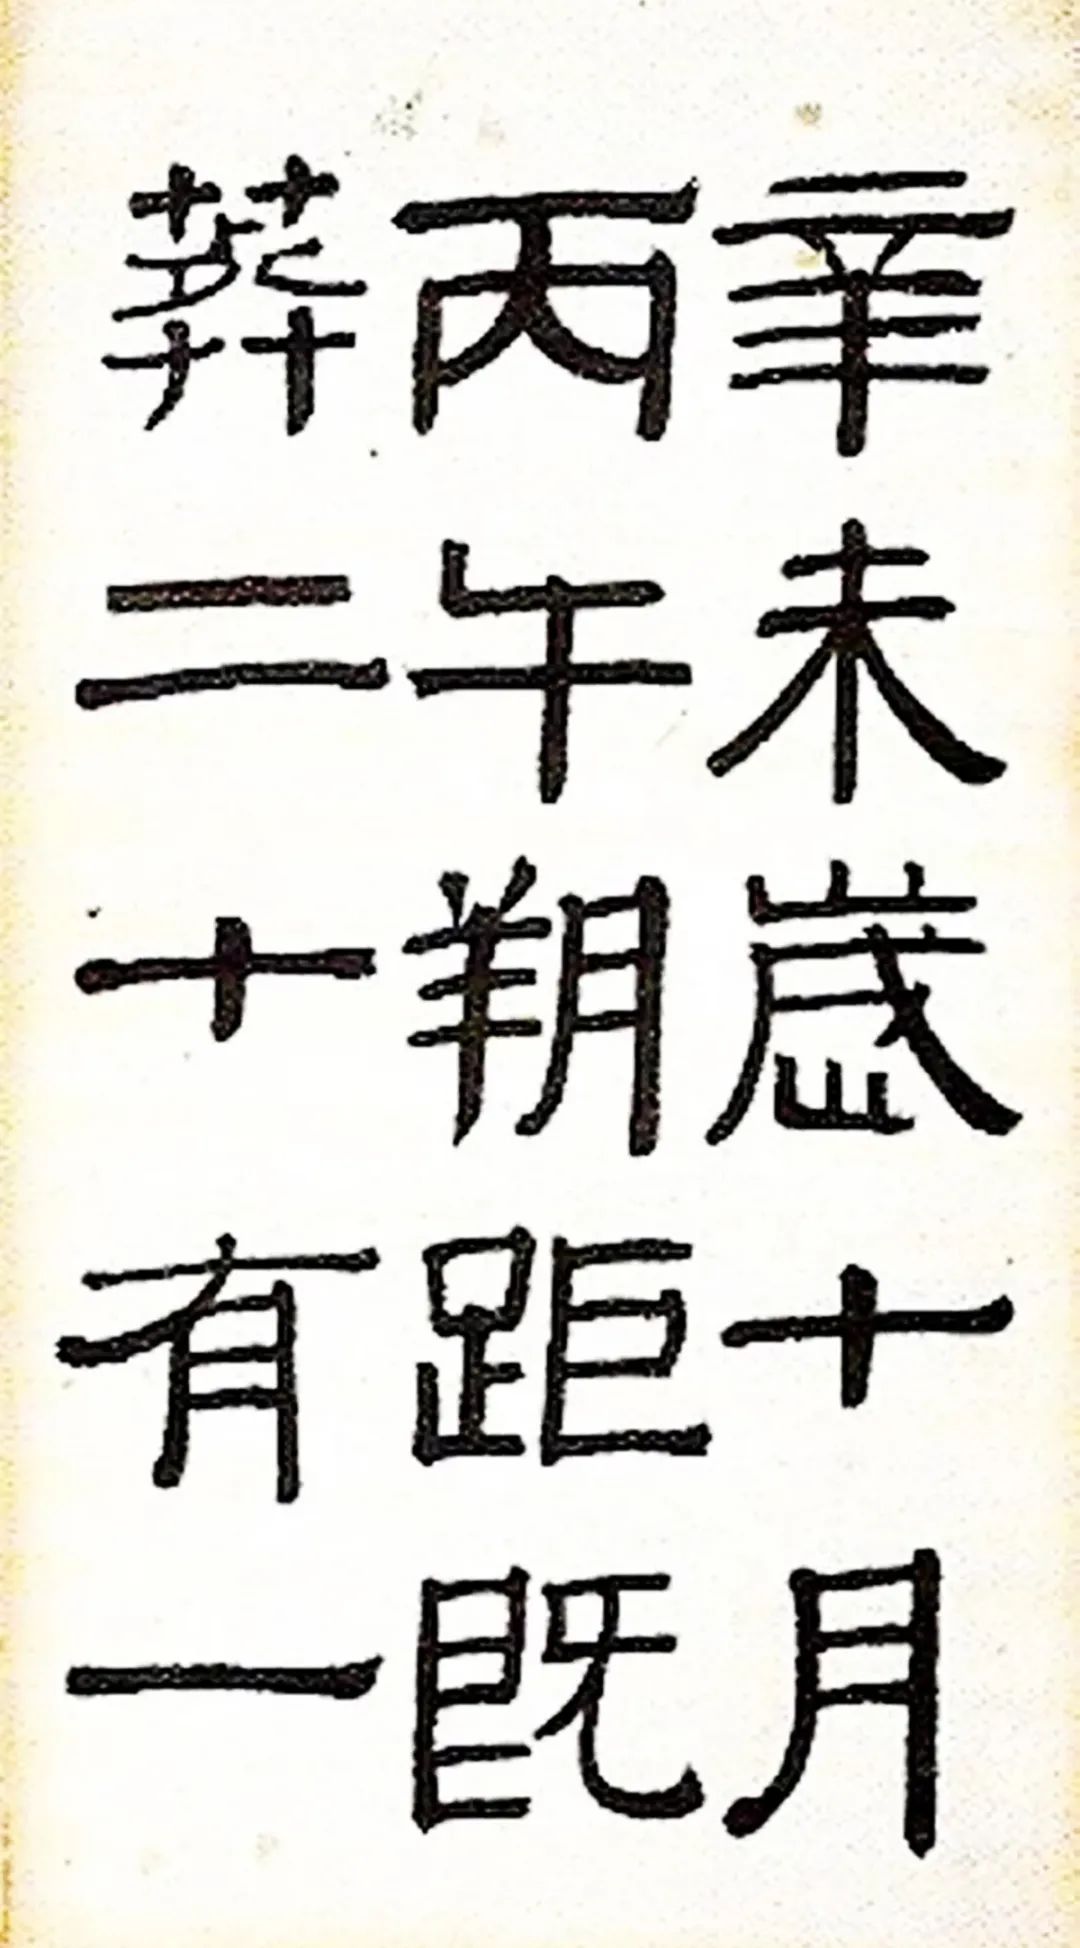 辛未歲十月
丙午朔距既
葬二十有一